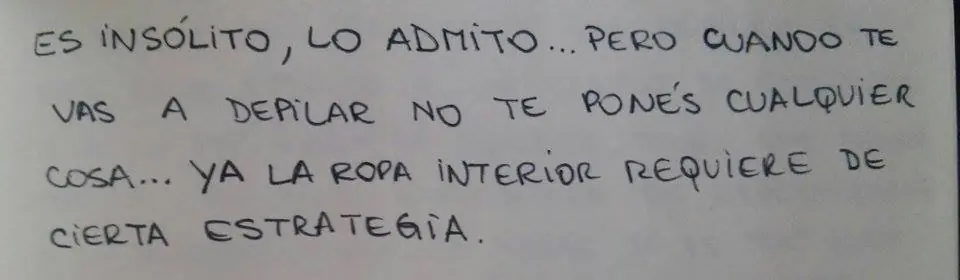 ES INSÓLITO, LO ADMITO... PERO CUANDO TE
VAS A DEPILAR NO TE PONÉS CUALQUIER
COSA... YA LA ROPA INTERIOR REQUIERE DE
CIERTA ESTRATEGIA.